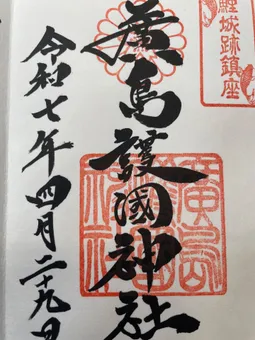 鯉城跡鎮座
廣島護國神社
令和七年四月二十九日